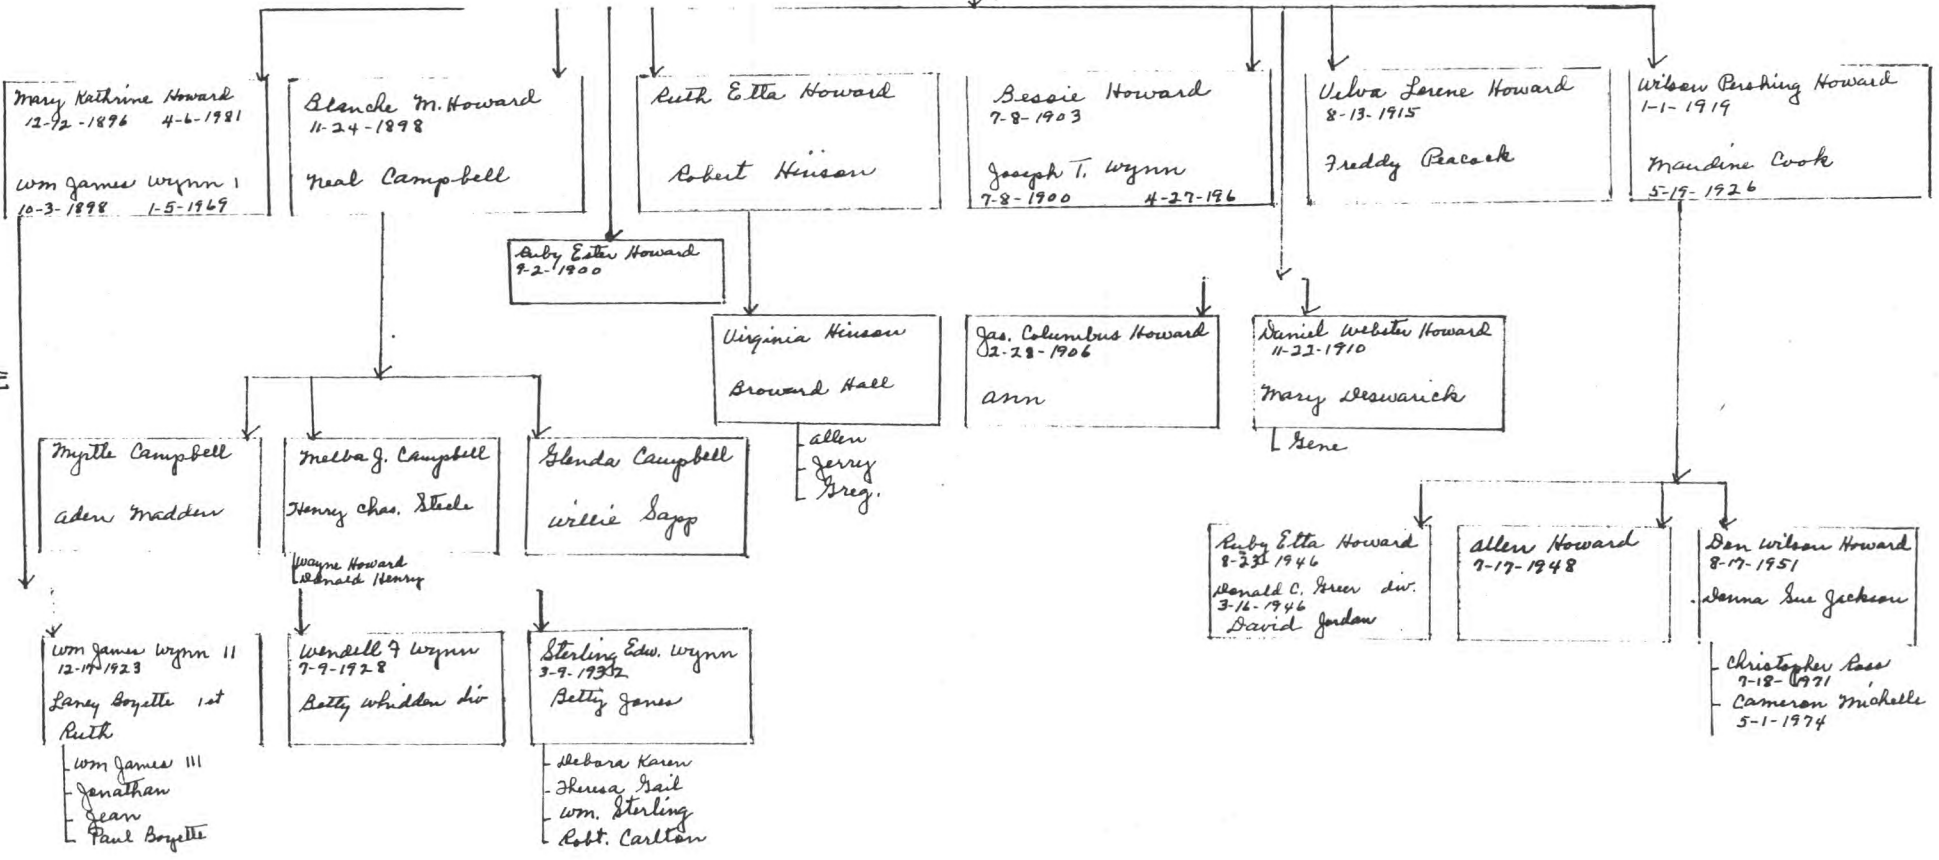 Mary Kathrine Howard
12-12-1896 4-6-1981
Wm James Wynn I
10-3-1898 1-5-1969
Blanche M. Howard
11-24-1898
Neal Campbell
Ruth Etta Howard
Robert Hinson
Bessie Howard
7-8-1903
Joseph T. Wynn
7-8-1900 4-27-196
Velva Lorene Howard
8-13-1915
Freddy Peacock
Wilson Pershing Howard
1-1-1919
Maudine Cook
5-19-1926
Ruby Ester Howard
9-2-1900
Virginia Hinson
Broward Hall
Allen
Jerry
Greg.
Jas. Columbus Howard
2-28-1906
Ann
Daniel Webster Howard
11-22-1910
Mary Deswarick
Gene
Myrtle Campbell
Aden Madden
Melba J. Campbell
Henry Chas. Steele
Wayne Howard
Donald Henry
Glenda Campbell
Willie Sapp
Ruby Etta Howard
8-23-1946
Donald C. Greer div.
3-16-1946
David Jordan
Allen Howard
7-17-1948
Don Wilson Howard
8-17-1951
Donna Sue Jackson
Christopher Ross
7-18-1971
Cameron Michelle
5-1-1974
Wm James Wynn II
12-17-1923
Laney Boyette 1st
Ruth
Wm James III
Jonathan
Jean
Paul Boyette
Wendell F Wynn
7-9-1928
Betty Whidden div
Sterling Edw. Wynn
3-9-1932
Betty Jones
Debora Karen
Theresa Gail
Wm. Sterling
Robt. Carlton